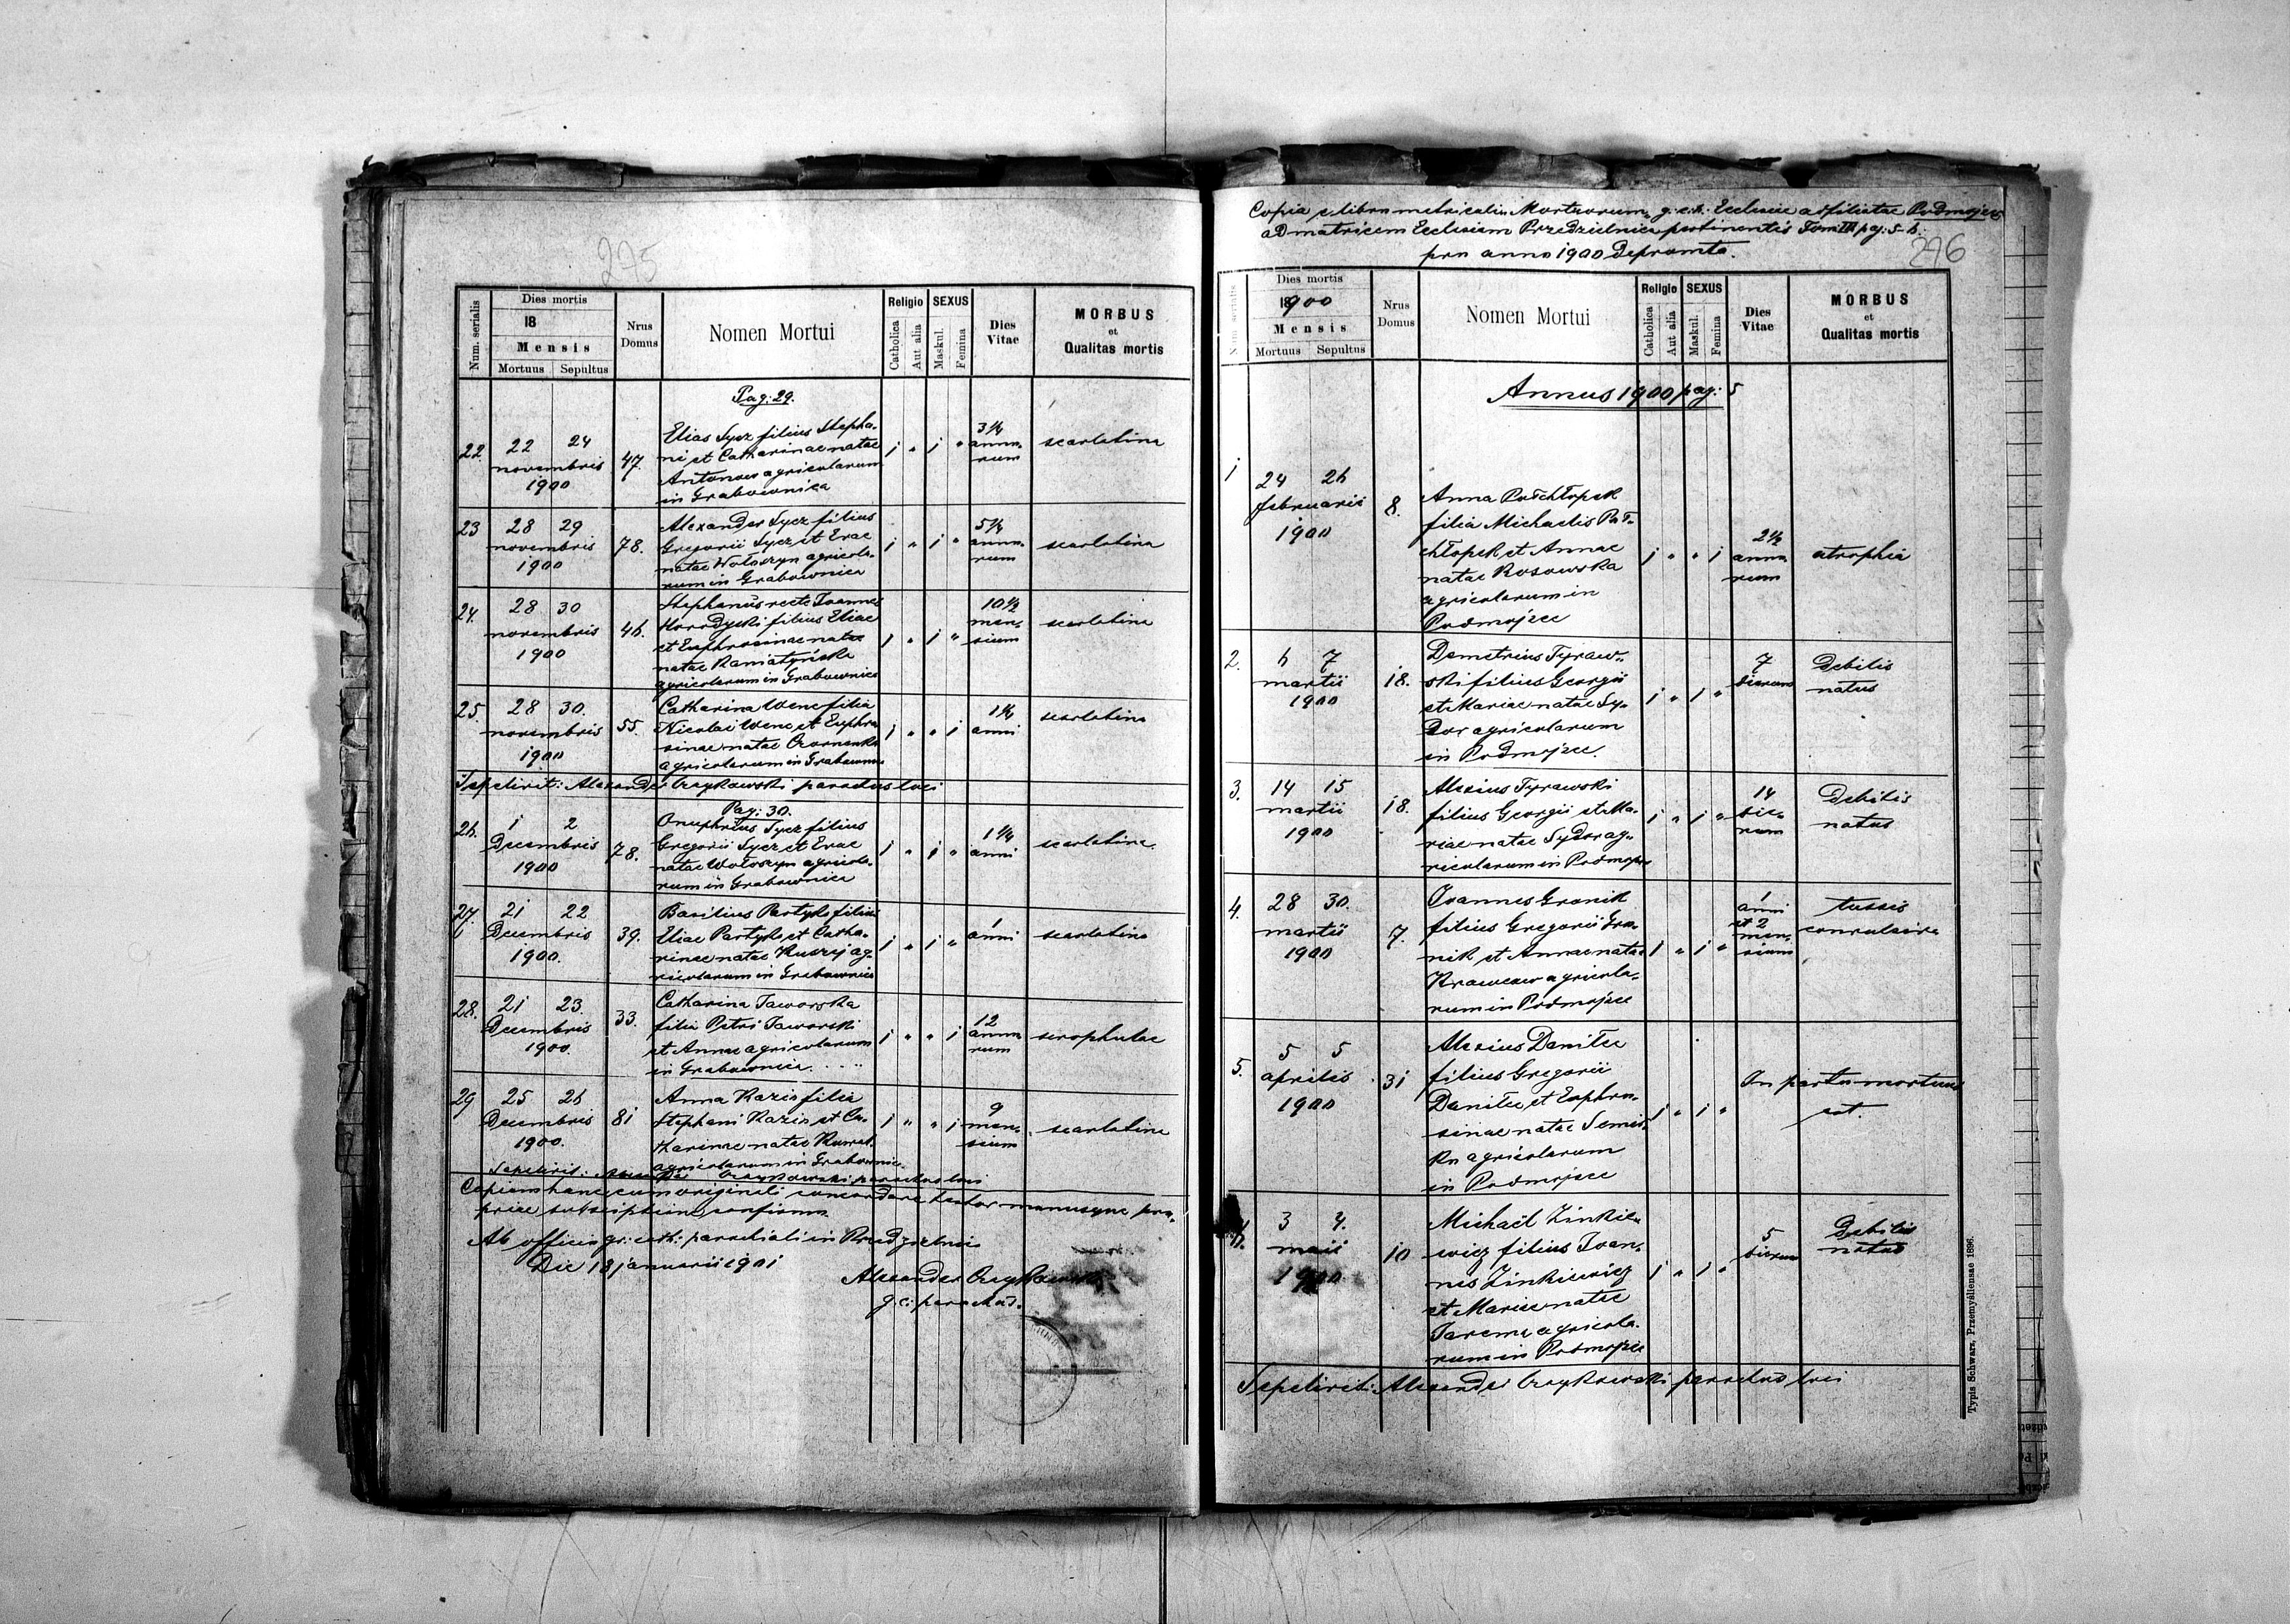 275
Num. serialis
Dies mortis
18
Mensis
Mortuus Sepultus
Nrus Domus
Nomen Mortui
Religio
Catholica
Aut alia
SEXUS
Maskul.
Femina
Dies Vitae
MORBUS
et
Qualitas mortis
Pag: 29.
22. 22 24 novembris 1900 47.
Elias Sycz filius Stepha-
ni et Catharinae natae
Antonow agricolarum
in Grabownica
1 " 1 " 3 1/4 anno-rum scarlatina
23 28 29 novembris 1900 78.
Alexander Sycz filius
Gregorii Sycz et Evae
natae Wołoszyn agricola-
rum in Grabownica
1 " 1 " anno-rum scarlatina
24. 28 30 novembris 1900 46.
Stephanus recte Joannes
Horodyski filius Eliae
et Euphrosinae natae
agricolarum in Grabownica
1 " 1 " 10 1/2 men-sium scarlatina
25. 28 30. novembris 1900 55.
Catharina Wenc filia
Nicolai Wenc et Euphro
sinae natae
agricolarum in Grabownica
1 " " 1 anni scarlatina
Sepelivit: Alexander Czajkowski parochus loci
Pag: 30.
26. 1 2 Decembris 1900 78.
Onuphrius Sycz filius
Gregorii Sycz et Evae
natae Wołoszyn agricola-
rum in Grabownica
1 " 1 " 1 1/4 anni scarlatina
27. 21 22 Decembris 1900. 39.
Basilius Partyka filius
Eliae Partyka et Catha-
rinae natae ag-
ricolarum in Grabownica
1 " 1 " 1 anni scarlatina
28. 21 23. Decembris 1900. 33.
Catharina Jaworska
filia Petri Jaworski
et Annae agricolarum
in Grabownica.
1 " " 1 12 anno rum scrophulae
29 25 26 Decembris 1900. 81
Anna Kazio filia
Stephani Kazio et Ca-
tharinae natae
agricolarum in Grabownica
1 " " 1 9 men-sium scarlatina
Sepelivit: Alexander Czajkowski parochus loci
Copiam hanc cum originali concordare testor manuque pro-
pria subscriptione confirmo.
Ab officio gr: cath: parochiali in Przedzielnica
Die 18 januarii 1901
Alexander Czajkowski
g. c. parochus.
Copia e libro metricali Mortuorum, g. c. r. Ecclesiae adfiliatae Podmojsce
ad matricem Ecclesiam Przedzielnica pertinentis Tom III pag: 5-6.
pro anno 1900 Depromta.
276
Num. serialis
Dies mortis
1900
Mensis
Mortuus Sepultus
Nrus Domus
Nomen Mortui
Religio
Catholica
Aut alia
SEXUS
Maskul.
Femina
Dies Vitae
MORBUS
et
Qualitas mortis
Annus 1900 pag: 5
1 24 26 februaris 1900 8.
Anna Połchłopek
filia Michaelis Poł-
chłopek et Annae
natae Kosowska
agricolarum in
Podmojsce
1 " " 1 2 1/2 anno rum atrophia
2. 6 7 martii 1900 18.
Demetrius Tyraw-
ski filius Georgii
et Mariae natae Sy-
dor agricolarum
in Podmojsce.
1 " 1 " 7 dierum Debilis natus
3. 14 15 martii 1900 18.
Alexius Tyrawski
filius Georgii et Ma-
riae natae Sydor ag-
ricolarum in Podmojsce
1 " 1 " 14 die-rum Debilis natus
4. 28 30. martii 1900 7.
Joannes Gronik
filius Gregorii Gro-
nik et Annae natae
Krawcow agricola-
rum in Podmojsce
1 " 1 " 1 anni et 2 men-sium tussis convulsiva
5. 5 5 aprilis 1900 31
Alexius Danilce
filius Gregorii
Danilce et Euphro-
sinae natae Semis-
ko agricolarum
in Podmojsce
1 " 1 " In partu mortuus
est.
6. 3 4. maii 1900 10
Michaël Zinkie-
wicz filius Joan-
nis Zinkiewicz
et Mariae natae
Jarema agricola-
rum in Podmojsce
1 " 1 " 5 dierum Debilis natus
Sepelivit: Alexander Czajkowski parochus loci
Typis Schwarz, Przemyśliensae 1896.